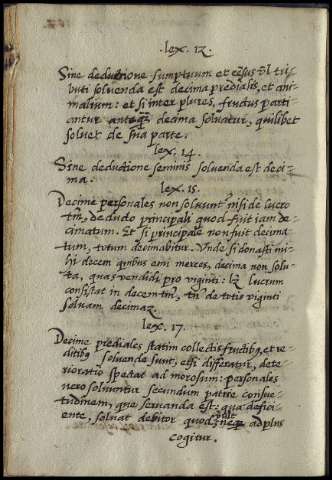 .lex. 12.
Sine deductione sumptuum et census vl tri
buti soluenda est decima predialis, et ani
malium: et si inter plures, fructus parti
antur anteqз decima soluatur, quilibet
soluet de sua parte.
lex. 14.
Sine deductione seminis soluenda est deci
ma.
lex. 15.
Decime personales non soluunt nisi de lucro
tm̄, deducto principali quod fuit iam de=
cimatum. Et si principale non fuit decima
tum, totum decimabitur. Unde si donasti mi-
hi decem quibus emi merces, decima non solu
ta, quas vendidi pro viginti: lz lucrum
consistat in decem tm̄, tn̄ de totis viginti
soluam decimaz.
lex. 17.
Decime prediales statim collectis fructibз, et re=
ditibз soluende sunt, et si differatur, dete
rioratio spectat ad morosum: personales
vero soluuntur secundum patrie consue=
tudinem, que seruanda est: qua defici=
ente, soluat debitor quod vult neqз ad plus
cogitur.